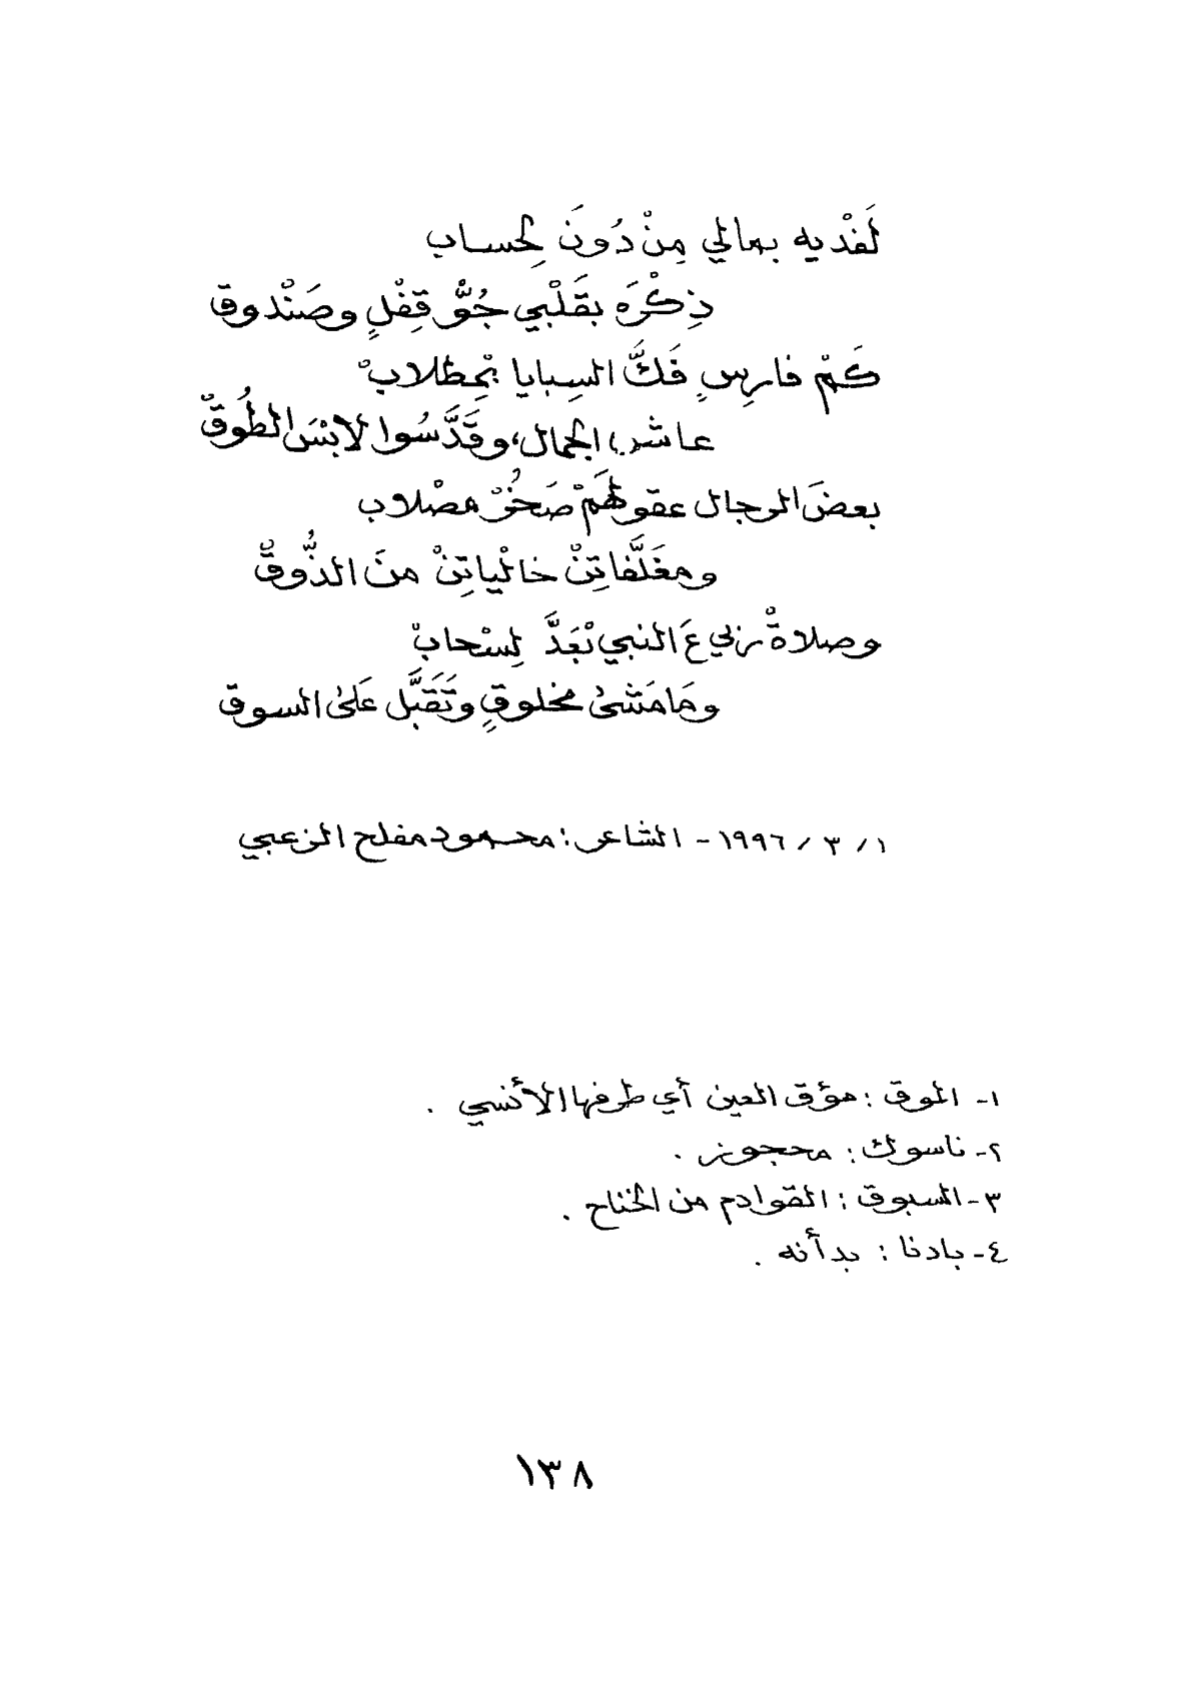 لَفْديه بمالي مِنْ دُونَ لِحساب
ذِكْرَه بقَلْبي جُوّ قِفْلٍ وصَنْدوق
كَمْ فارِسٍ فَكَّ السِبايا بْمِطْلابْ
عاش الجمال، وقَدَّسُوا لابْسَ الطُوقْ
بعضَ الرجال عقولهَمْ صَخُرْ مصْلاب
ومغَلَّفاتِنْ خالْياتِنْ منَ الذُّوقْ
وصلاةْ ربي عَ النبي بْعَدَّ لِسْحابْ
ومَا مَشىْ مخلوقٍ وتَقَبَّل عَلىْ السوق
١ / ٣ / ١٩٩٦ - الشاعر: محمود مفلح الزعبي
١- الموق: مؤق العين أي طرفها الأنسي .
٢- ناسوك: محجوز .
٣- السبوق: القوادم من الجناح .
٤- بادنا: بدأنه .
١٣٨